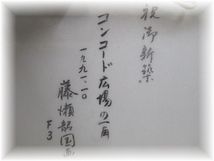 祝御新築
コンコード広場の一角
一九九一.一〇
藤瀬韶国
F3